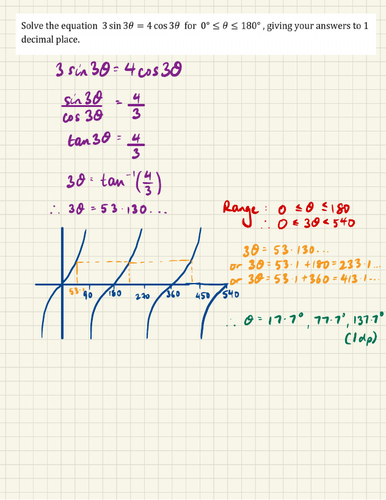 Solve the equation 3 sin 3θ = 4 cos 3θ for 0° ≤ θ ≤ 180°, giving your answers to 1
decimal place.
3 sin 3θ = 4 cos 3θ
sin 3θ / cos 3θ = 4/3
tan 3θ = 4/3
3θ = tan⁻¹(4/3)
∴ 3θ = 53.130...
Range: 0 ≤ θ ≤ 180
∴ 0 ≤ 3θ ≤ 540
3θ = 53.130...
or 3θ = 53.1 + 180 = 233.1...
or 3θ = 53.1 + 360 = 413.1...
53. 90 180 270 360 450 540
∴ θ = 17.7°, 77.7°, 137.7°
(1dp)